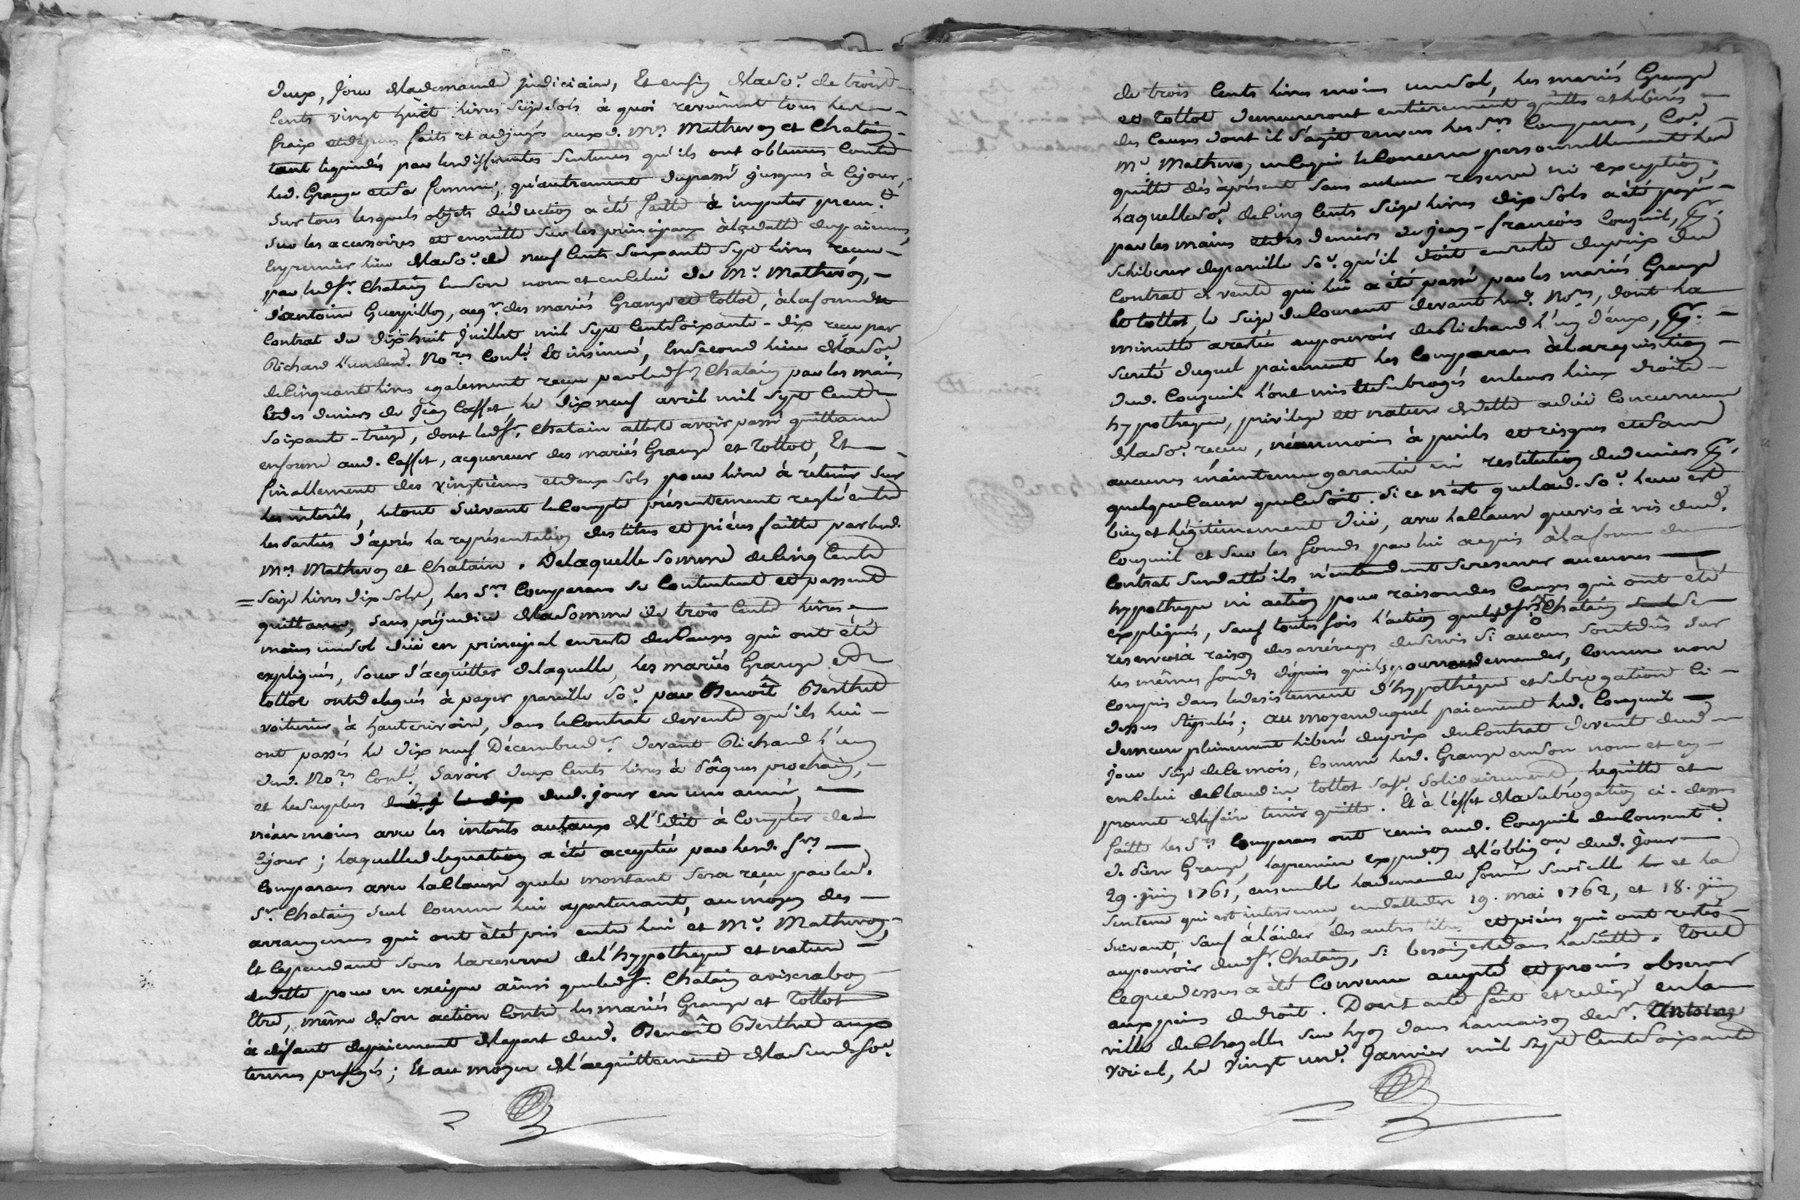 deux, jour de la demande judiciaire, Et enfin de la so.e de trois
cents vingt huit livres seize sols à quoi revoinnent tous les
fraix et dépens faits et adjugés aux d. Mrs Mathevon et Chatain,
tant liquidés par les différentes sentences qu'ils ont obtenues contre
led. Grange et sa femme, qu'autrement du passé jusques à ce jour,
sur tous lesquels objets déduction a été faitte à imputer prem.t
sur les accessoires et ensuitte sur les principaux à la datte des paiemens,
en premier lieu de la so.e de neuf cents soixante sept livres recue
par led. sr. Chatain en son nom et en celui de Mr. Mathevon,
d'antoine Guerpillon, acqr. des mariés Grange et Tollot, à la forme du
contrat du dix huit Juillet mil sept cent soixante-dix recu par
Richard l'un desd. No.res cont.é Et insinué, En second lieu de la so.e
de cinquante livres egalement recue par led. sr. Chatain par les mains
et des deniers de Jean Casset le dix neuf avril mil sept cent
soixante-treize, dont led. sr. Chatain atteste avoir passé quittance
en forme aud. Casset, acquereur des mariés Grange et Tollot, Et
finallement des vingtiemes et deux sols pour livre à retenir sur
les interêts, le tout suivant le compte présentement reglé entre
les parties d'après la représentation des titres et pièces faitte par lesd.
Mrs Mathevon et Chatain. De laquelle somme de cinq cents
= seize livres dix sols, les srs. Comparans se contentent et passent
quittance, sans préjudice de la somme de trois cents livres
moins un sol düe en principal en reste des causes qui ont été
expliqués, pour s'acquitter de laquelle, les mariés Grange et
Tollot ont delegués à payer pareille so.e par Benoît Berthet
voiturier à hauterivoire, dans le contrat de vente qu'ils lui
ont passés le dix neuf Décembre d.r devant Richard l'un
desd. No.res cont.é, Savoir deux cents livres à Pâques prochain,
et le surplus dud. jour en une année,
néanmoins avec les interêts au taux de l'Edit à compter de
ce jour; laquelle delegation a été acceptée par lesd. srs
comparans avec la clause que le montant sera recu par led.
sr. Chatain seul comme lui apartenant, au moyen des
arrangemens qui ont été pris entre lui et Mr. Mathevon,
Et cependant sous la reserve de l'hypothéque et nature
de dette pour en exciper ainsi que led. sr. Chatain avisera bon
Etre, même de son action contre les mariés Grange et Tollot
à défaut de paiement de la part dud. Benoît Berthet aux
termes préfixés; Et au moyen de l'acquittement de la susd. so.e
de trois cents livres moins un sol, les mariés Grange
et Tollot demeureront entièrement quittes et libérés
des causes dont il s'agit envers les srs Comparans,
Mr. Mathevon en ce qui le concerne personnellement les
quitte dès àprésent sans aucune reserve ni exception.
Laquelle so.e de cinq cents seize livres dix sols a été payée
par les mains et des deniers de Jean-francois Couzeuil,
se liberer de pareille so.e qu'il doit en reste du prix du
contrat de vente qui lui a été passé par les mariés Grange
et Tollot, le seize du courant devant lesd. No.res, dont la
minutte a restée au pouvoir de Richard l'un d'eux,
sureté duquel paiement les Comparans à la requisition
dud. Couzeuil l'ont mis et subrogés en leurs lieux droits
hypotheque, privilege et nature de dette a düe concurrence
de la so.e recue, néanmoins à perils et risques et sans
aucunes maintenue garantie ni restitution de deniers
quelque cause que ce soit. Si ce n'est que lad. so.e leur est
bien et légitimement düe, avec la clause que vis à vis dud.
Couzeuil et sur les fonds par lui acquis à la forme du
contrat susdatté ils n'entendent se reserver aucunes
hypotheque ni action pour raison des causes qui ont été
expliqués, sauf toutesfois l'action que led. sr. Chatain se
reserve à raison des arrérages de servis si aucuns sont dûs sur
les mêmes fonds depuis qu'il pourroit demander, comme non
compris dans le desistement d'hypothéque et subrogation ci-
dessus stipulés; au moyen duquel paiement led. Couzeuil
demeure pleinement liberé du prix du contrat de vente dud.
jour seize de ce mois, comme led. Grange en son nom et en
celui de Claudine Tollot sa fe. solidairement, le quitte et
promet de le faire tenir quitte. Et à l'effet de la subrogation ci-dessus
faitte les srs. comparans ont remis aud. Couzeuil du consent.t
de Pierre Grange, la premiere expedon de l'oblig.on dud. jour
29. juin 1761, ensemble la demande formée sur icelle et la
sentence qui est intervenue en datte des 19. mai 1762, et 18. juin
suivant, sauf à l'aider des autres titres et pièces qui ont restés
au pouvoir dud. sr. Chatain, si besoin est dans la suitte. Tout
ce que dessus a été convenu accepté et promis observer
aux peines de droit. Dont acte fait et redigé en la
ville de Chazelles sur Lyon dans la maison de sr. Antoine
Voirel, le vingt un.e Janvier mil sept cent soixante